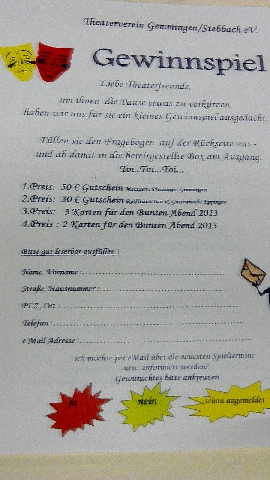 Theaterverein Gemmingen/Stebbach eV.
Gewinnspiel
Liebe Theaterfreunde,
um ihnen die Pause etwas zu verkürzen
haben wir uns für sie ein kleines Gewinnspiel ausgedacht.
Füllen sie den Fragebogen auf der Rückseite aus -
und ab damit in die bereitgestellte Box am Ausgang.
Toi..Toi...Toi...
1.Preis: 50 € Gutschein
2.Preis: 30 € Gutschein
3.Preis: 3 Karten für den Bunten Abend 2013
4.Preis: 2 Karten für den Bunten Abend 2013
Bitte gut leserbar ausfüllen :
Name, Vorname :
Straße, Hausnummer :
PLZ, Ort :
Telefon :
e Mail Adresse :
ich möchte per eMail über die neuesten Spieltermine
usw. informiert werden?
Gewünschtes bitte ankreuzen
ja
nein
schon angemeldet